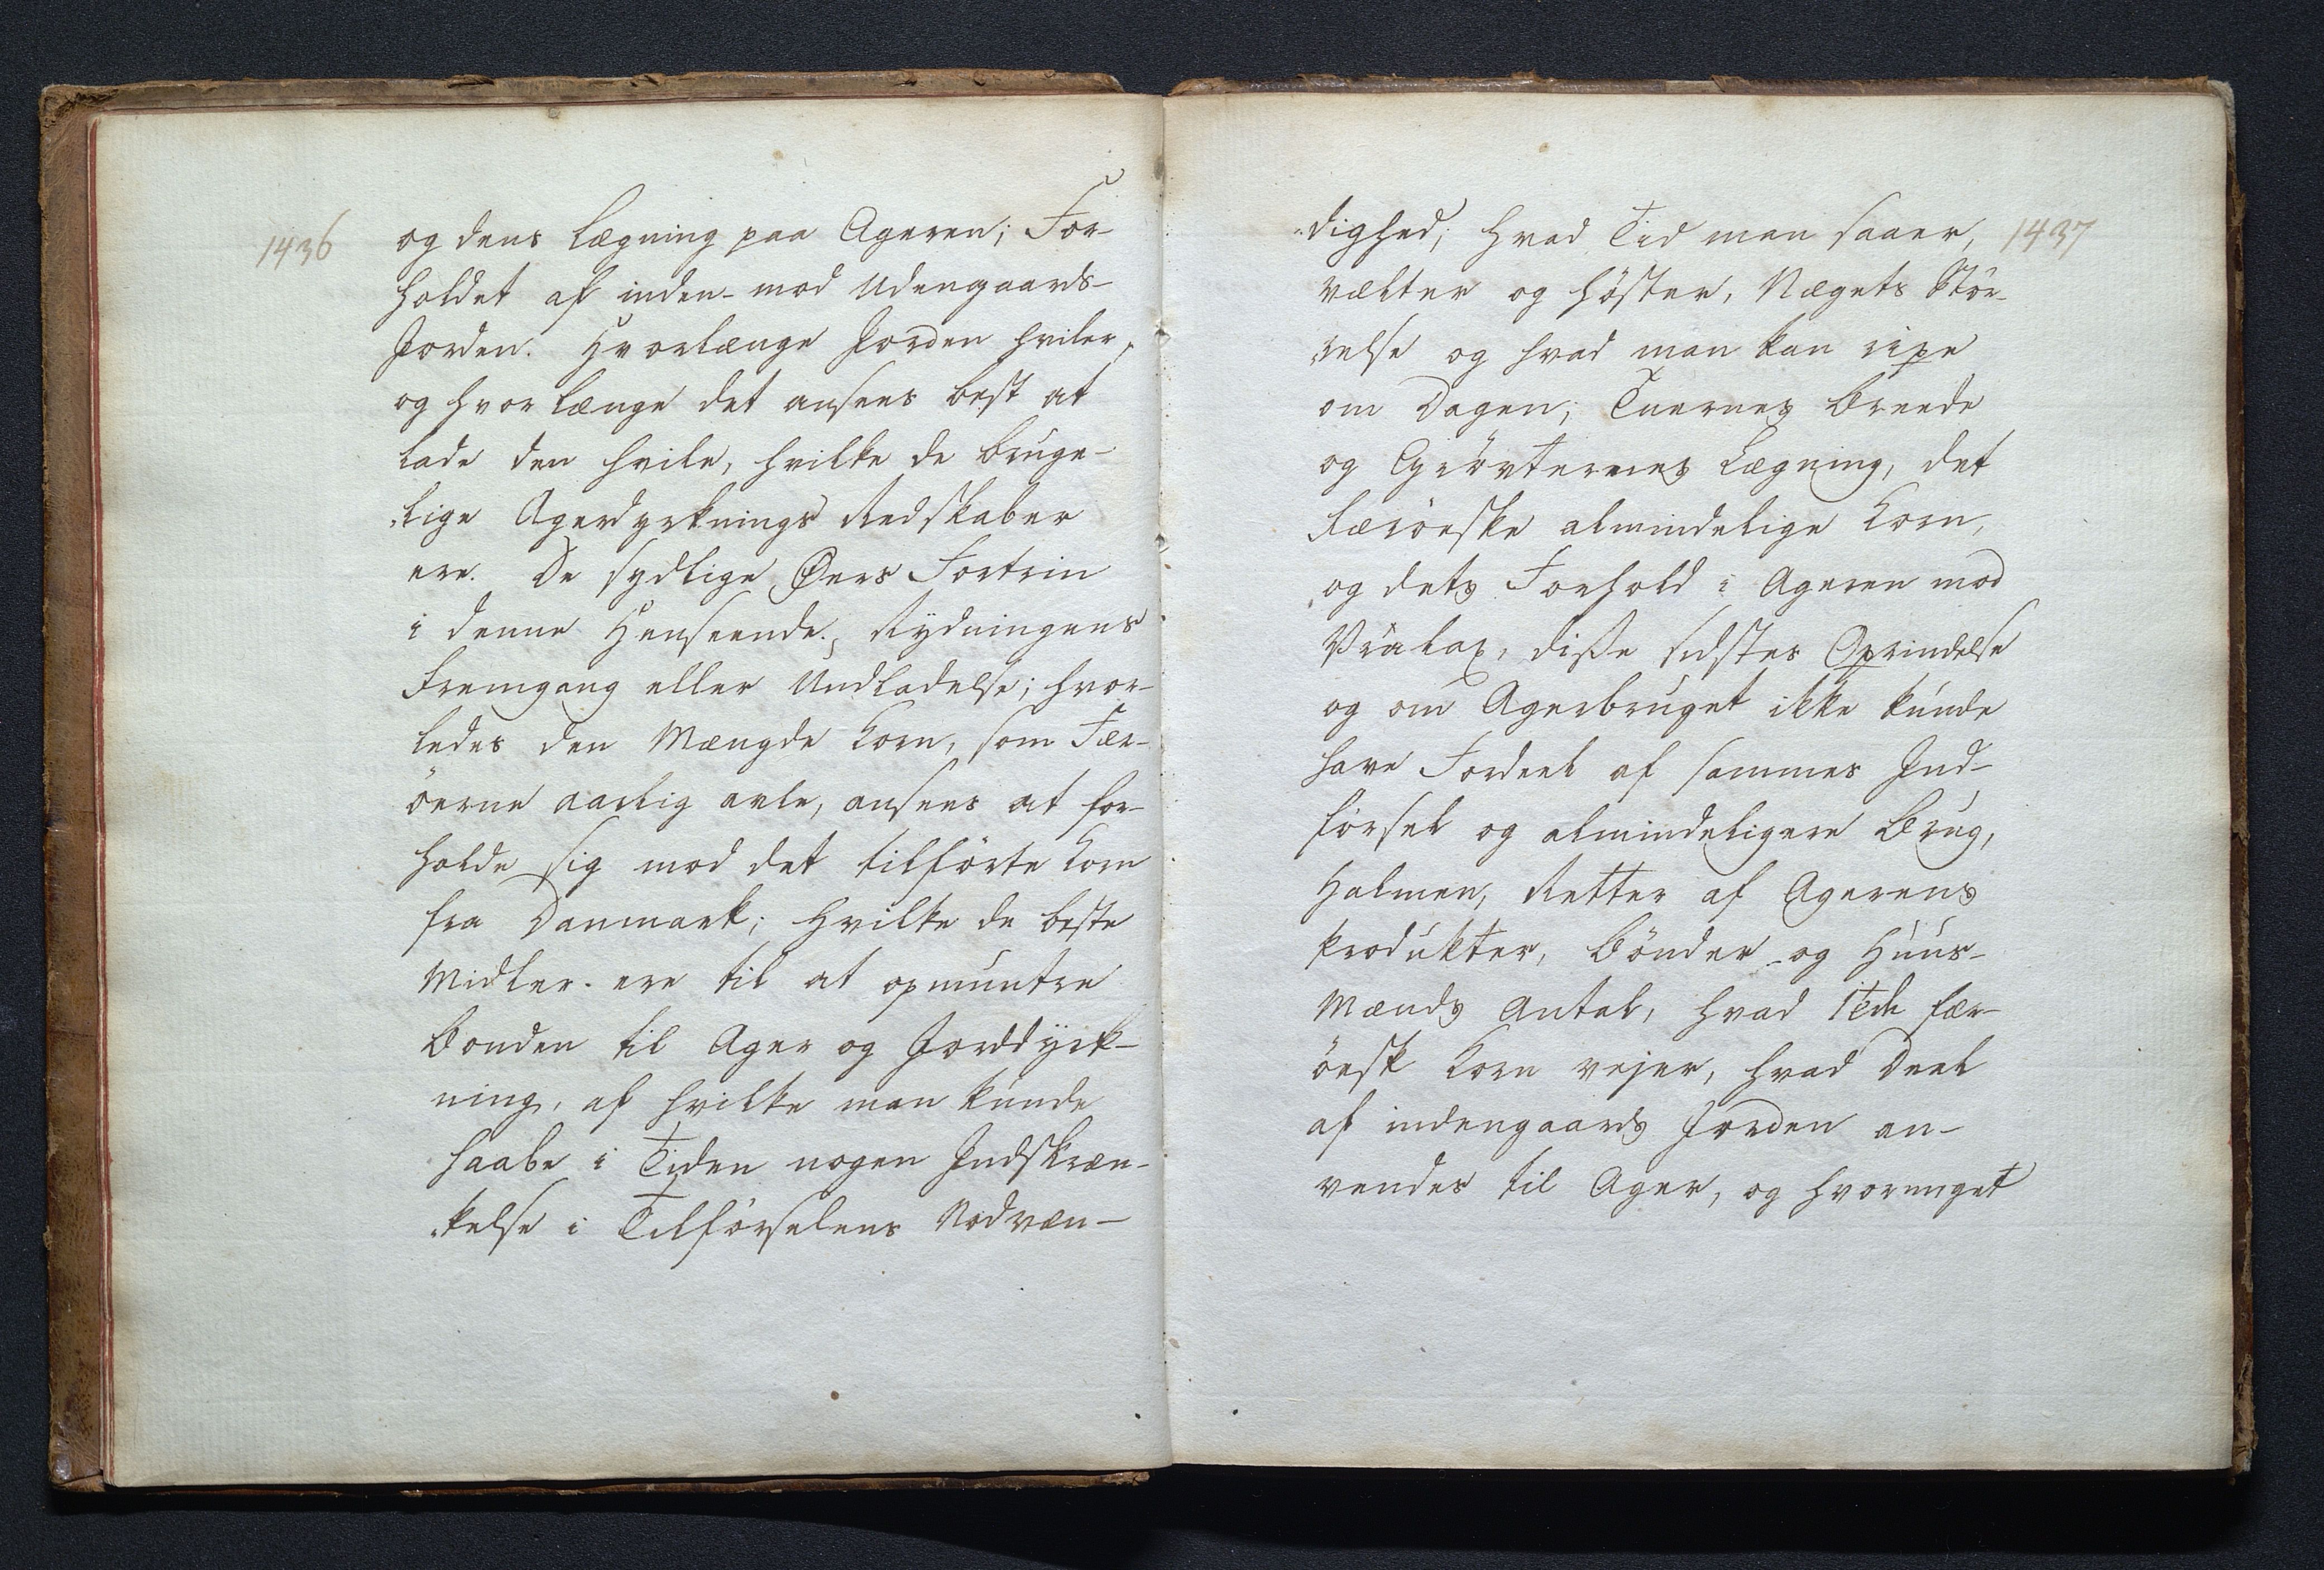 1436
og dens Lægning paa Ageren; For-
holdet af inden- mod Udengaards-
Jorden. Hvorlænge Jorden hviler,
og hvor længe det ansees best at
lade den hvile, hvilke de bruge-
lige Agerdyrknings Redskaber
ere. De sydlige Øers Fortrin
i denne Henseende. Rydningens
Fremgang eller Undladelse; hvor-
ledes den Mængde Korn, som Fær-
öerne aarlig avle, ansees at for-
holde sig mod det tilförte Korn
fra Danmark; Hvilke de beste
Midler ere til at opmuntre
Bonden til Ager og Jorddyrk-
ning, af hvilke man kunde
haabe i Tiden nogen Indskræn-
kelse i Tilförselens Nødven-
1437
dighed; Hvad Tid man saaer,
vælter og höster, Negets Stör-
relse og hvad man kan ripe
om Dagen; Teernes Breede
og Grövternes Lægning, det
færöeske almindelige Korn,
og dets Forhold i Ageren mod
disse sidstes Oprindelse
og om Agerbruget ikke kunde
have Fordeel af sammes Ind-
försel og almindeligere Brug,
Halmen, Retter af Agerens
Produkter, Bönder- og Huus-
Mænds Antal, hvad 1 Tde fær-
öesk Korn vejer, hvad Deel
af indengaards Jorden an-
vendes til Ager, og hvormeget